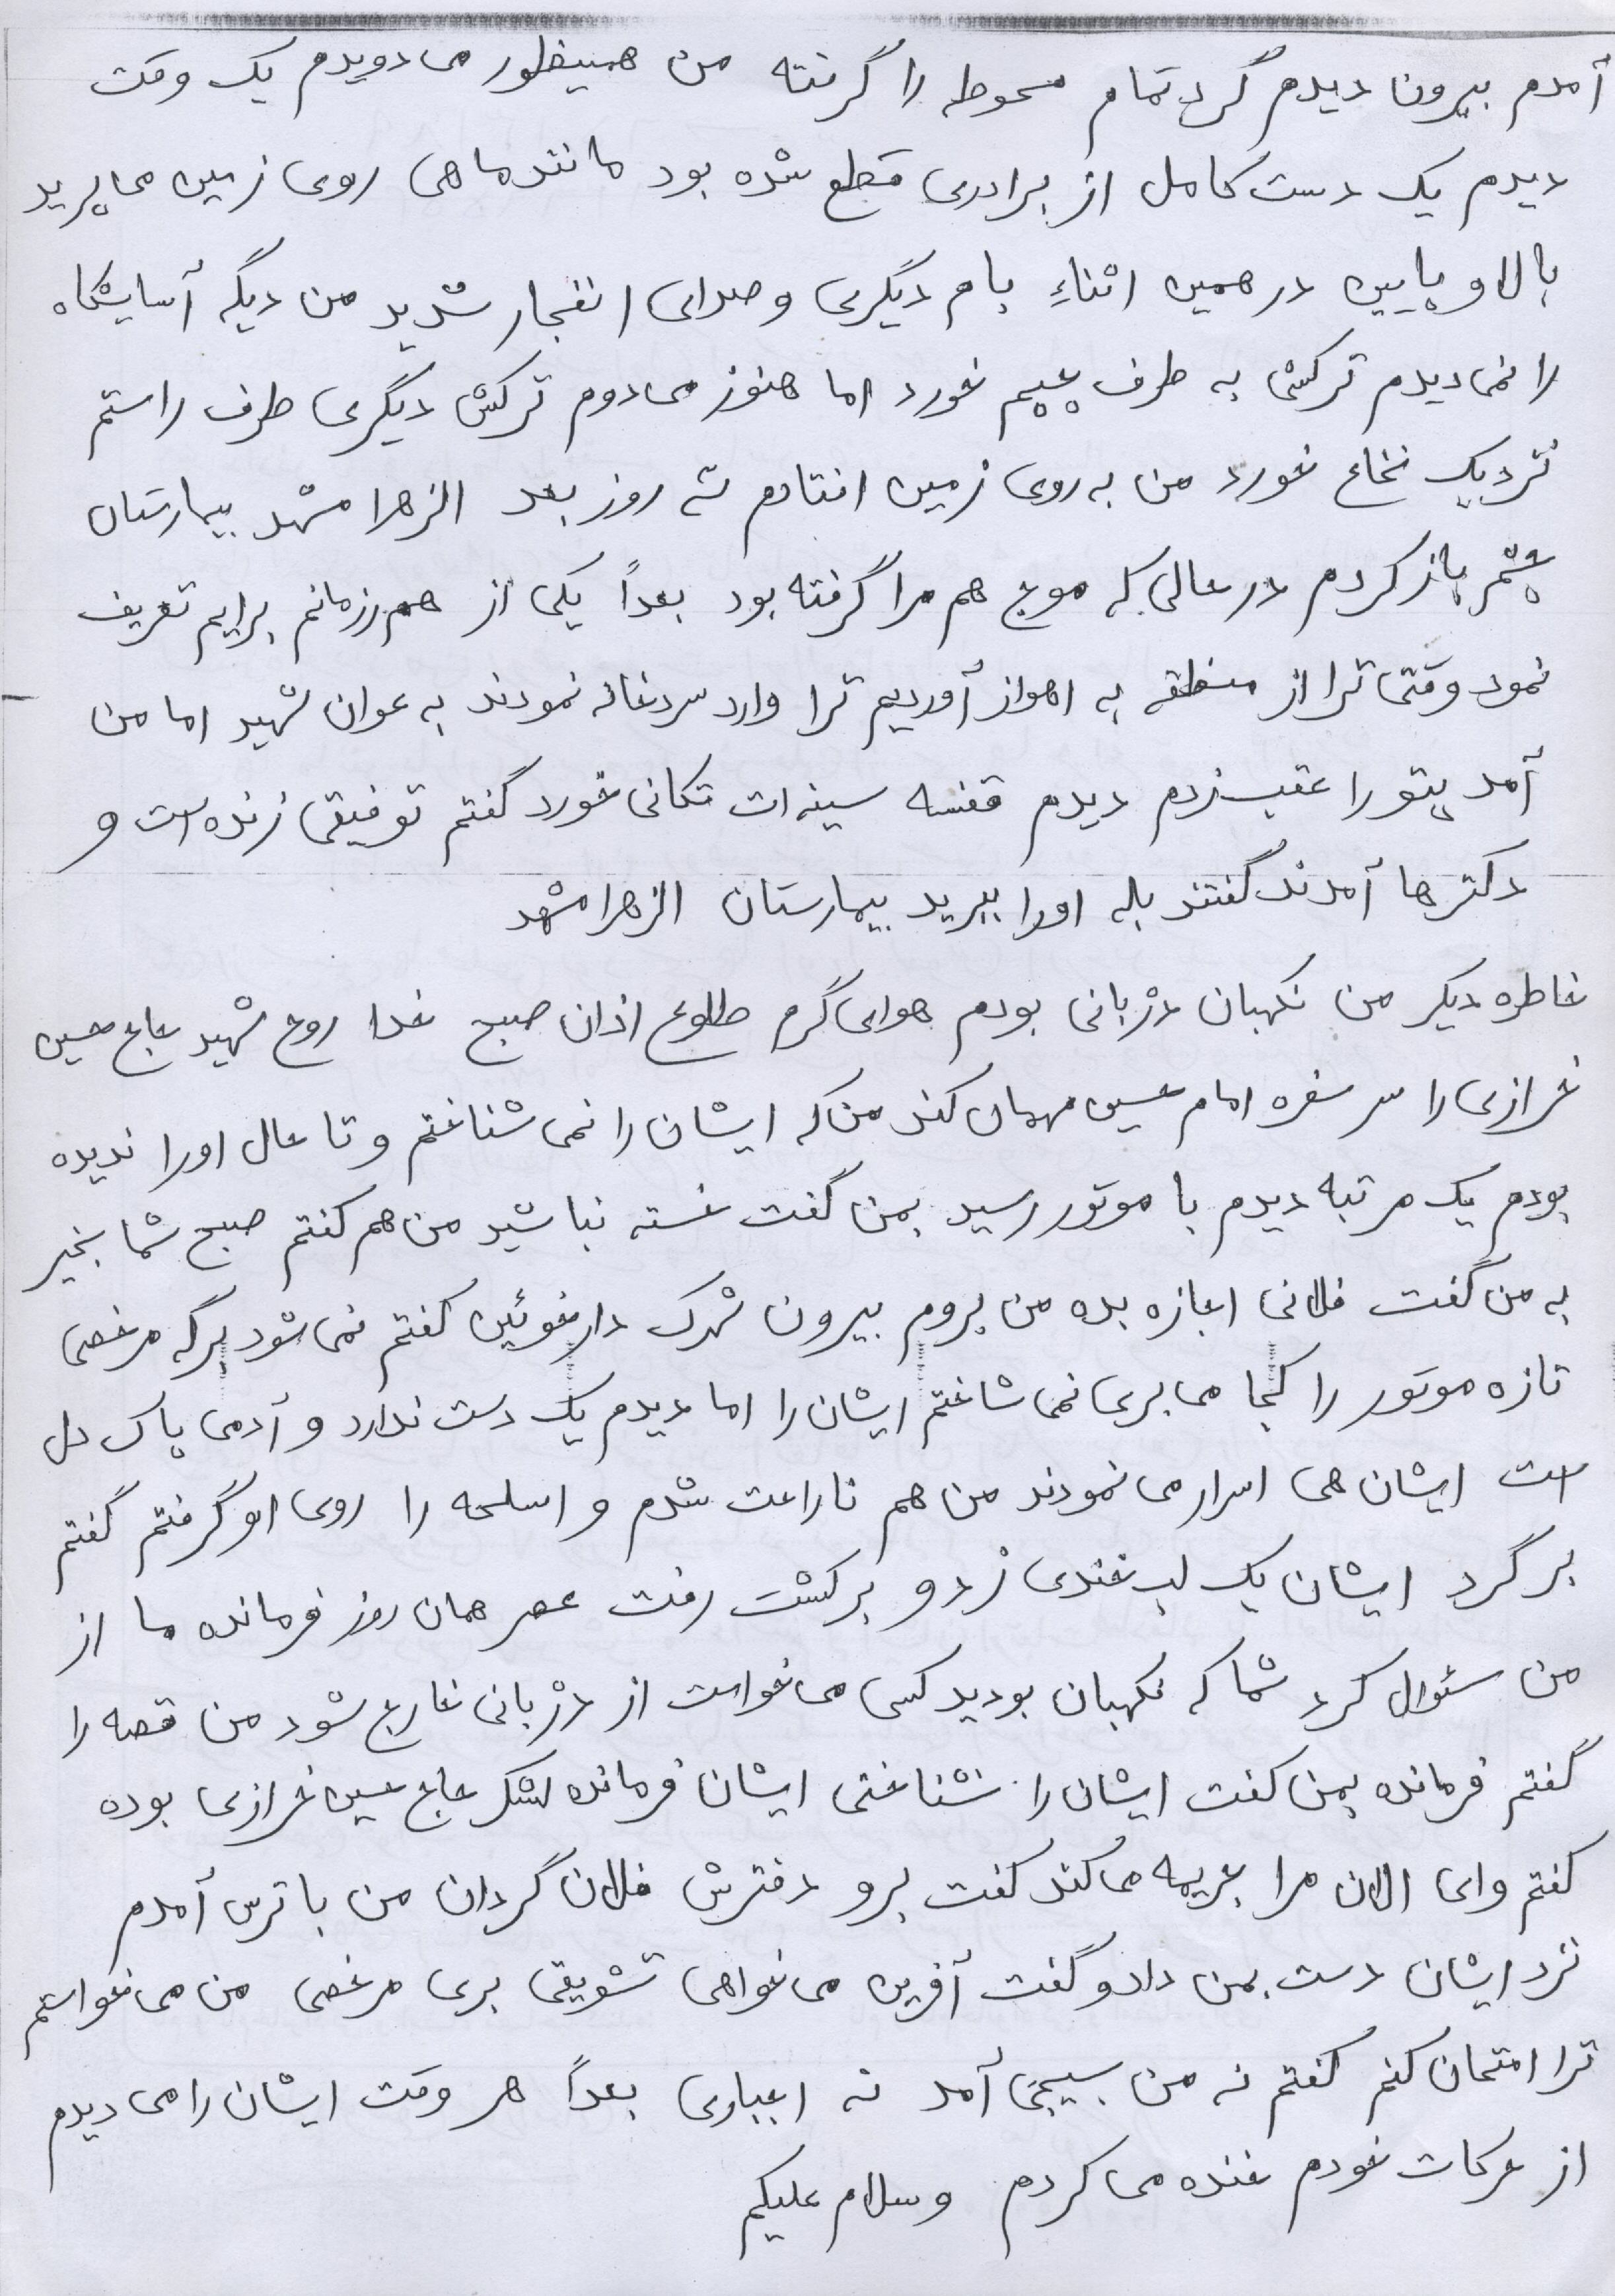 آمدم بیرون دیدم گرد تمام محوطه را گرفته من همینطور می دویدم یک وقت
دیدم یک دست کامل از برادری قطع شده بود مانند ماهی روی زمین می پرید
بالا و پایین در همین اثناء بام دیگری و صدای انفجار شدید من دیگه آسایشگاه
را نمی دیدم ترکشی به طرف چپم خورد اما هنوز می دوم ترکش دیگری طرف راستم
نزدیک نخاع خورد من به روی زمین افتادم سه روز بعد الزهرا مشهد بیمارستان
چشم باز کردم در حالی که موج هم مرا گرفته بود بعداً یکی از هم رزمانم برایم تعریف
نمود وقتی ترا از منطقه به اهواز آوردیم ترا وارد سردخانه نمودند به عوان شهید اما من
آمد پتو را عقب زدم دیدم قفسه سینه ات تکانی خورد گفتم توفیقی زنده است و
دکترها آمدند گفتند بله اورا ببرید بیمارستان الزهرا مشهد
خاطره دیگر من نگهبان دژبانی بودم هوای گرم طلوع اذان صبح خدا روح شهید حاج حسین
خرازی را سر سفره امام حسین مهمان کند من که ایشان را نمی شناختم و تا حال اورا ندیده
بودم یک مرتبه دیدم با موتور رسید بمن گفت خسته نباشید من هم گفتم صبح شما بخیر
به من گفت فلانی اجازه بده من بروم بیرون شهرک دارخوئین گفتم نمی شود برگه مرخصی
تازه موتور را کجا می بری نمی شاختم ایشان را اما دیدم یک دست ندارد و آدمی پاک دل
است ایشان هی اسرار می نمودند من هم ناراحت شدم و اسلحه را روی او گرفتم گفتم
برگرد ایشان یک لب خندی زد و برگشت رفت عصر همان روز فرمانده ما از
من سئوال کرد شما که نگهبان بودید کسی می خواست از دژبانی خارج شود من قصه را
گفتم فرمانده بمن گفت ایشان را نشناختی ایشان فرمانده لشگر حاج حسین خرازی بوده
گفتم وای الان مرا جریمه می کند گفت برو دفترش فلان گردان من با ترس آمدم
نزد ایشان دست بمن داد و گفت آفرین می خواهی تشویقی بری مرخصی من می خواستم
ترا امتحان کنم گفتم نه من بسیجی آمد نه اجباری بعداً هر وقت ایشان را می دیدم
از حرکات خودم خنده می کردم وسلام علیکم